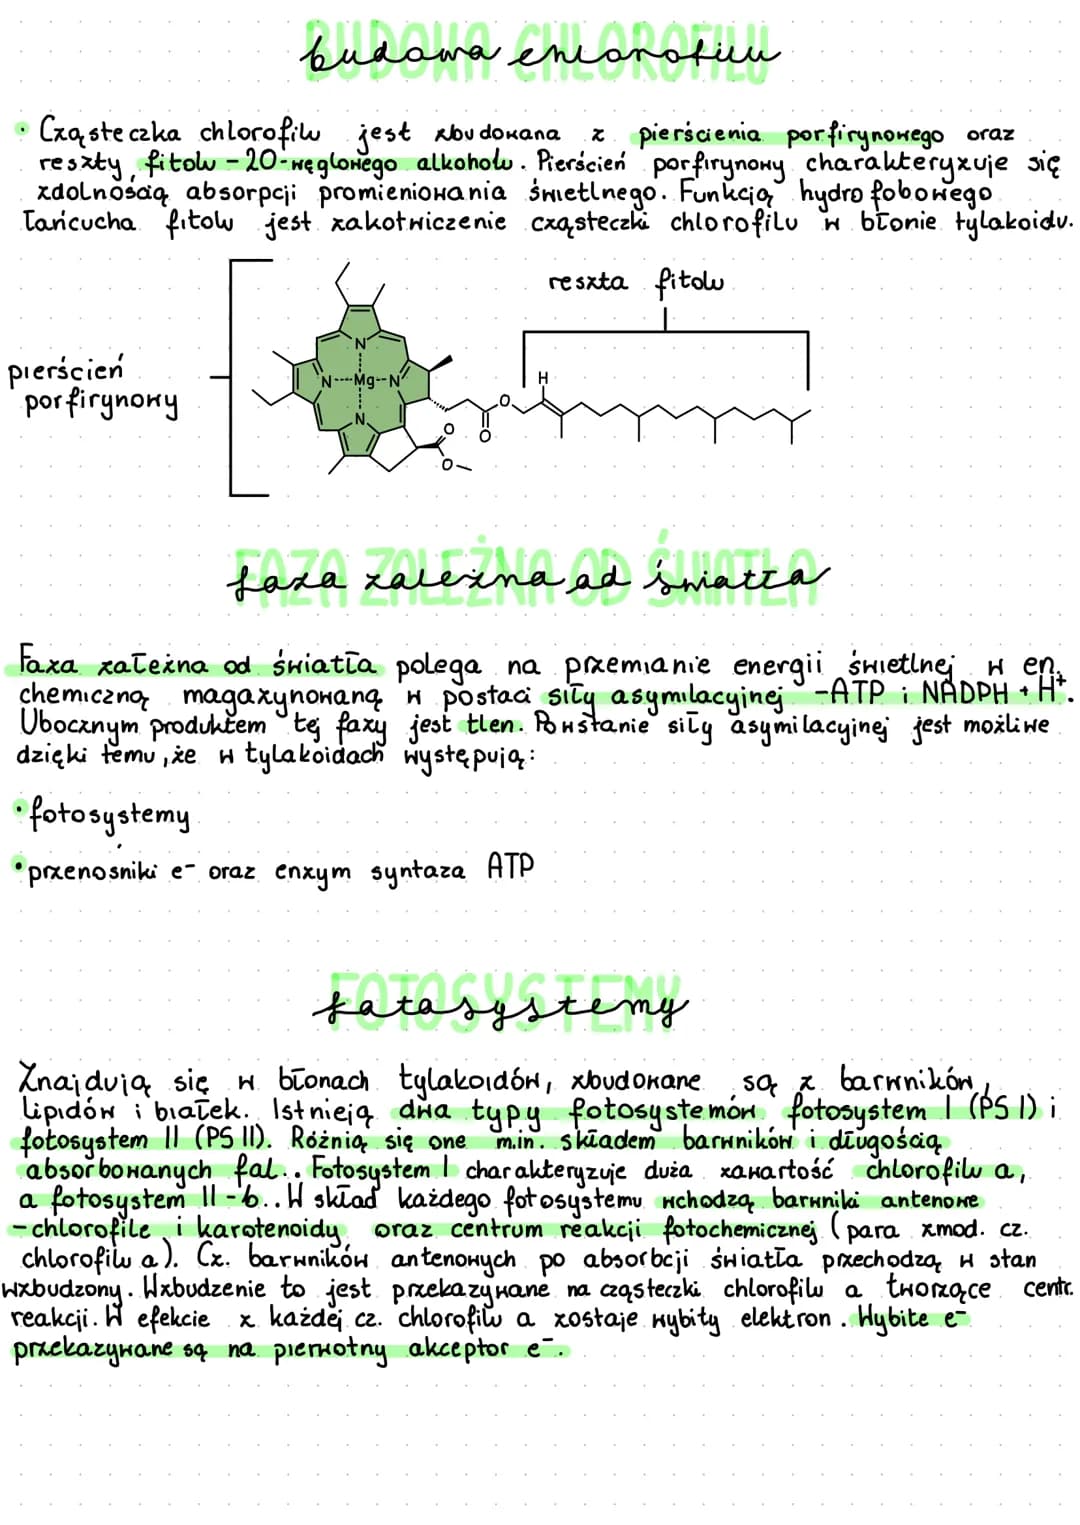 BUDOWA CHLOROFILU
budowa chlorofilu
• Cząsteczka chlorofilu jest zbudowana z pierścienia porfirynowego oraz
reszty fitolu - 20-węglowego alkoholu. Pierścień porfirynowy charakteryzuje się
zdolnością absorpcji promieniowania świetlnego. Funkcją hydrofobowego
łańcucha fitolu jest zakotwiczenie cząsteczki chlorofilu w błonie tylakoidu.
reszta fitolu
pierścień
porfirynowy
N
N Mg N
N
H
O
O
O
O
FAZA ZALEŻNA OD ŚWIATŁA
faza zależna od światła
Faza zależna od światła polega na przemianie energii świetlnej w en.
chemiczną magazynowaną w postaci siły asymilacyjnej - ATP i NADPH + H⁺.
Ubocznym produktem tej fazy jest tlen. Powstanie siły asymilacyjnej jest możliwe
dzięki temu, że w tylakoidach występują:
• fotosystemy
• przenośniki e⁻ oraz enzym syntaza ATP
FOTOSYSTEMY
fotosystemy
Znajdują się w błonach tylakoidów, zbudowane są z barwników,
lipidów i białek. Istnieją dwa typy fotosystemów fotosystem I (PS I) i
fotosystem II (PS II). Różnią się one m.in. składem barwników i długością
absorbowanych fal.. Fotosystem I charakteryzuje duża zawartość chlorofilu a,
a fotosystem II - b.. W skład każdego fotosystemu wchodzą barwniki antenowe
- chlorofile i karotenoidy oraz centrum reakcji fotochemicznej (para zmod. cz.
chlorofilu a). Cz. barwników antenowych po absorbcji światła przechodzą w stan
wzbudzony. Wzbudzenie to jest przekazywane na cząsteczki chlorofilu a tworzące centr.
reakcji. W efekcie z każdej cz. chlorofilu a zostaje wybity elektron. Wybite e⁻
przekazywane są na pierwotny akceptor e⁻.